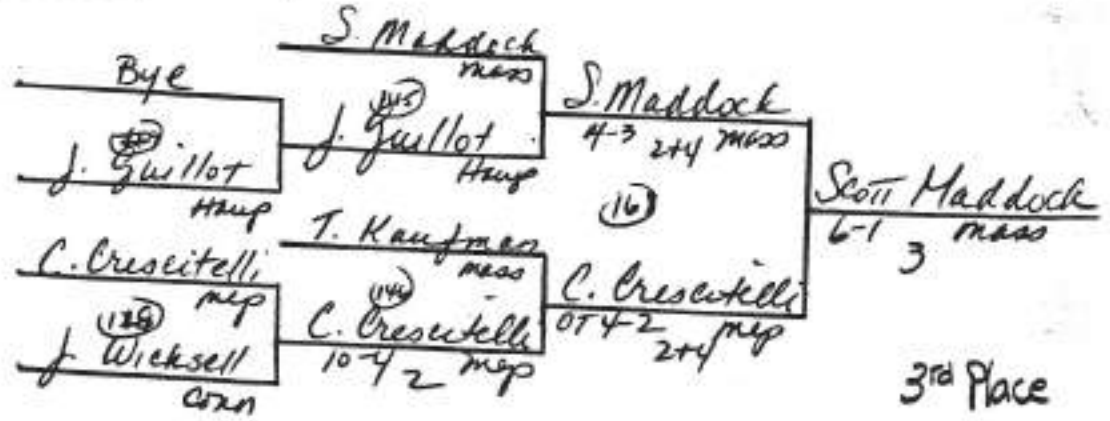 Bye
J. Guillot
Haup
C. Crescitelli
mep
J. Wicksell
Conn
S. Maddock
mass
145
J. Guillot
Haup
T. Kaufman
mass
144
C. Crescitelli
10-4 2 mep
S. Maddock
4-3 2+4 mass
161
C. Crescitelli
OT 4-2 2+4 mep
Scott Maddock
6-1 3 mass
3rd Place